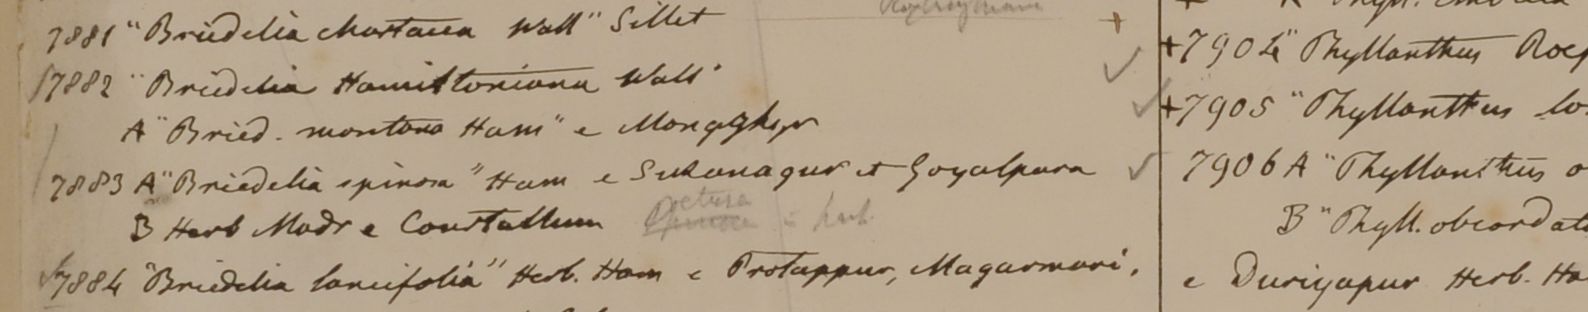 7881 "Briedelia chartacea Wall" Sillet
7882 "Briedelia Hamiltoniana Wall"
A "Bried. montana Ham" e Mongghyr
7883 A "Briedelia spinosa" Ham e Sukanagur et Goyalpara
B Herb Madr e Courtallum retusa spinosa in herb.
7884 "Briedelia lancifolia" Herb. Ham e Protappur, Magarmari.
+7904 "Phyllanthus Roep
+7905 "Phyllanthus lo
7906 A "Phyllanthus o
B "Phyll. obcordat
e Duriyapur Herb. Ha